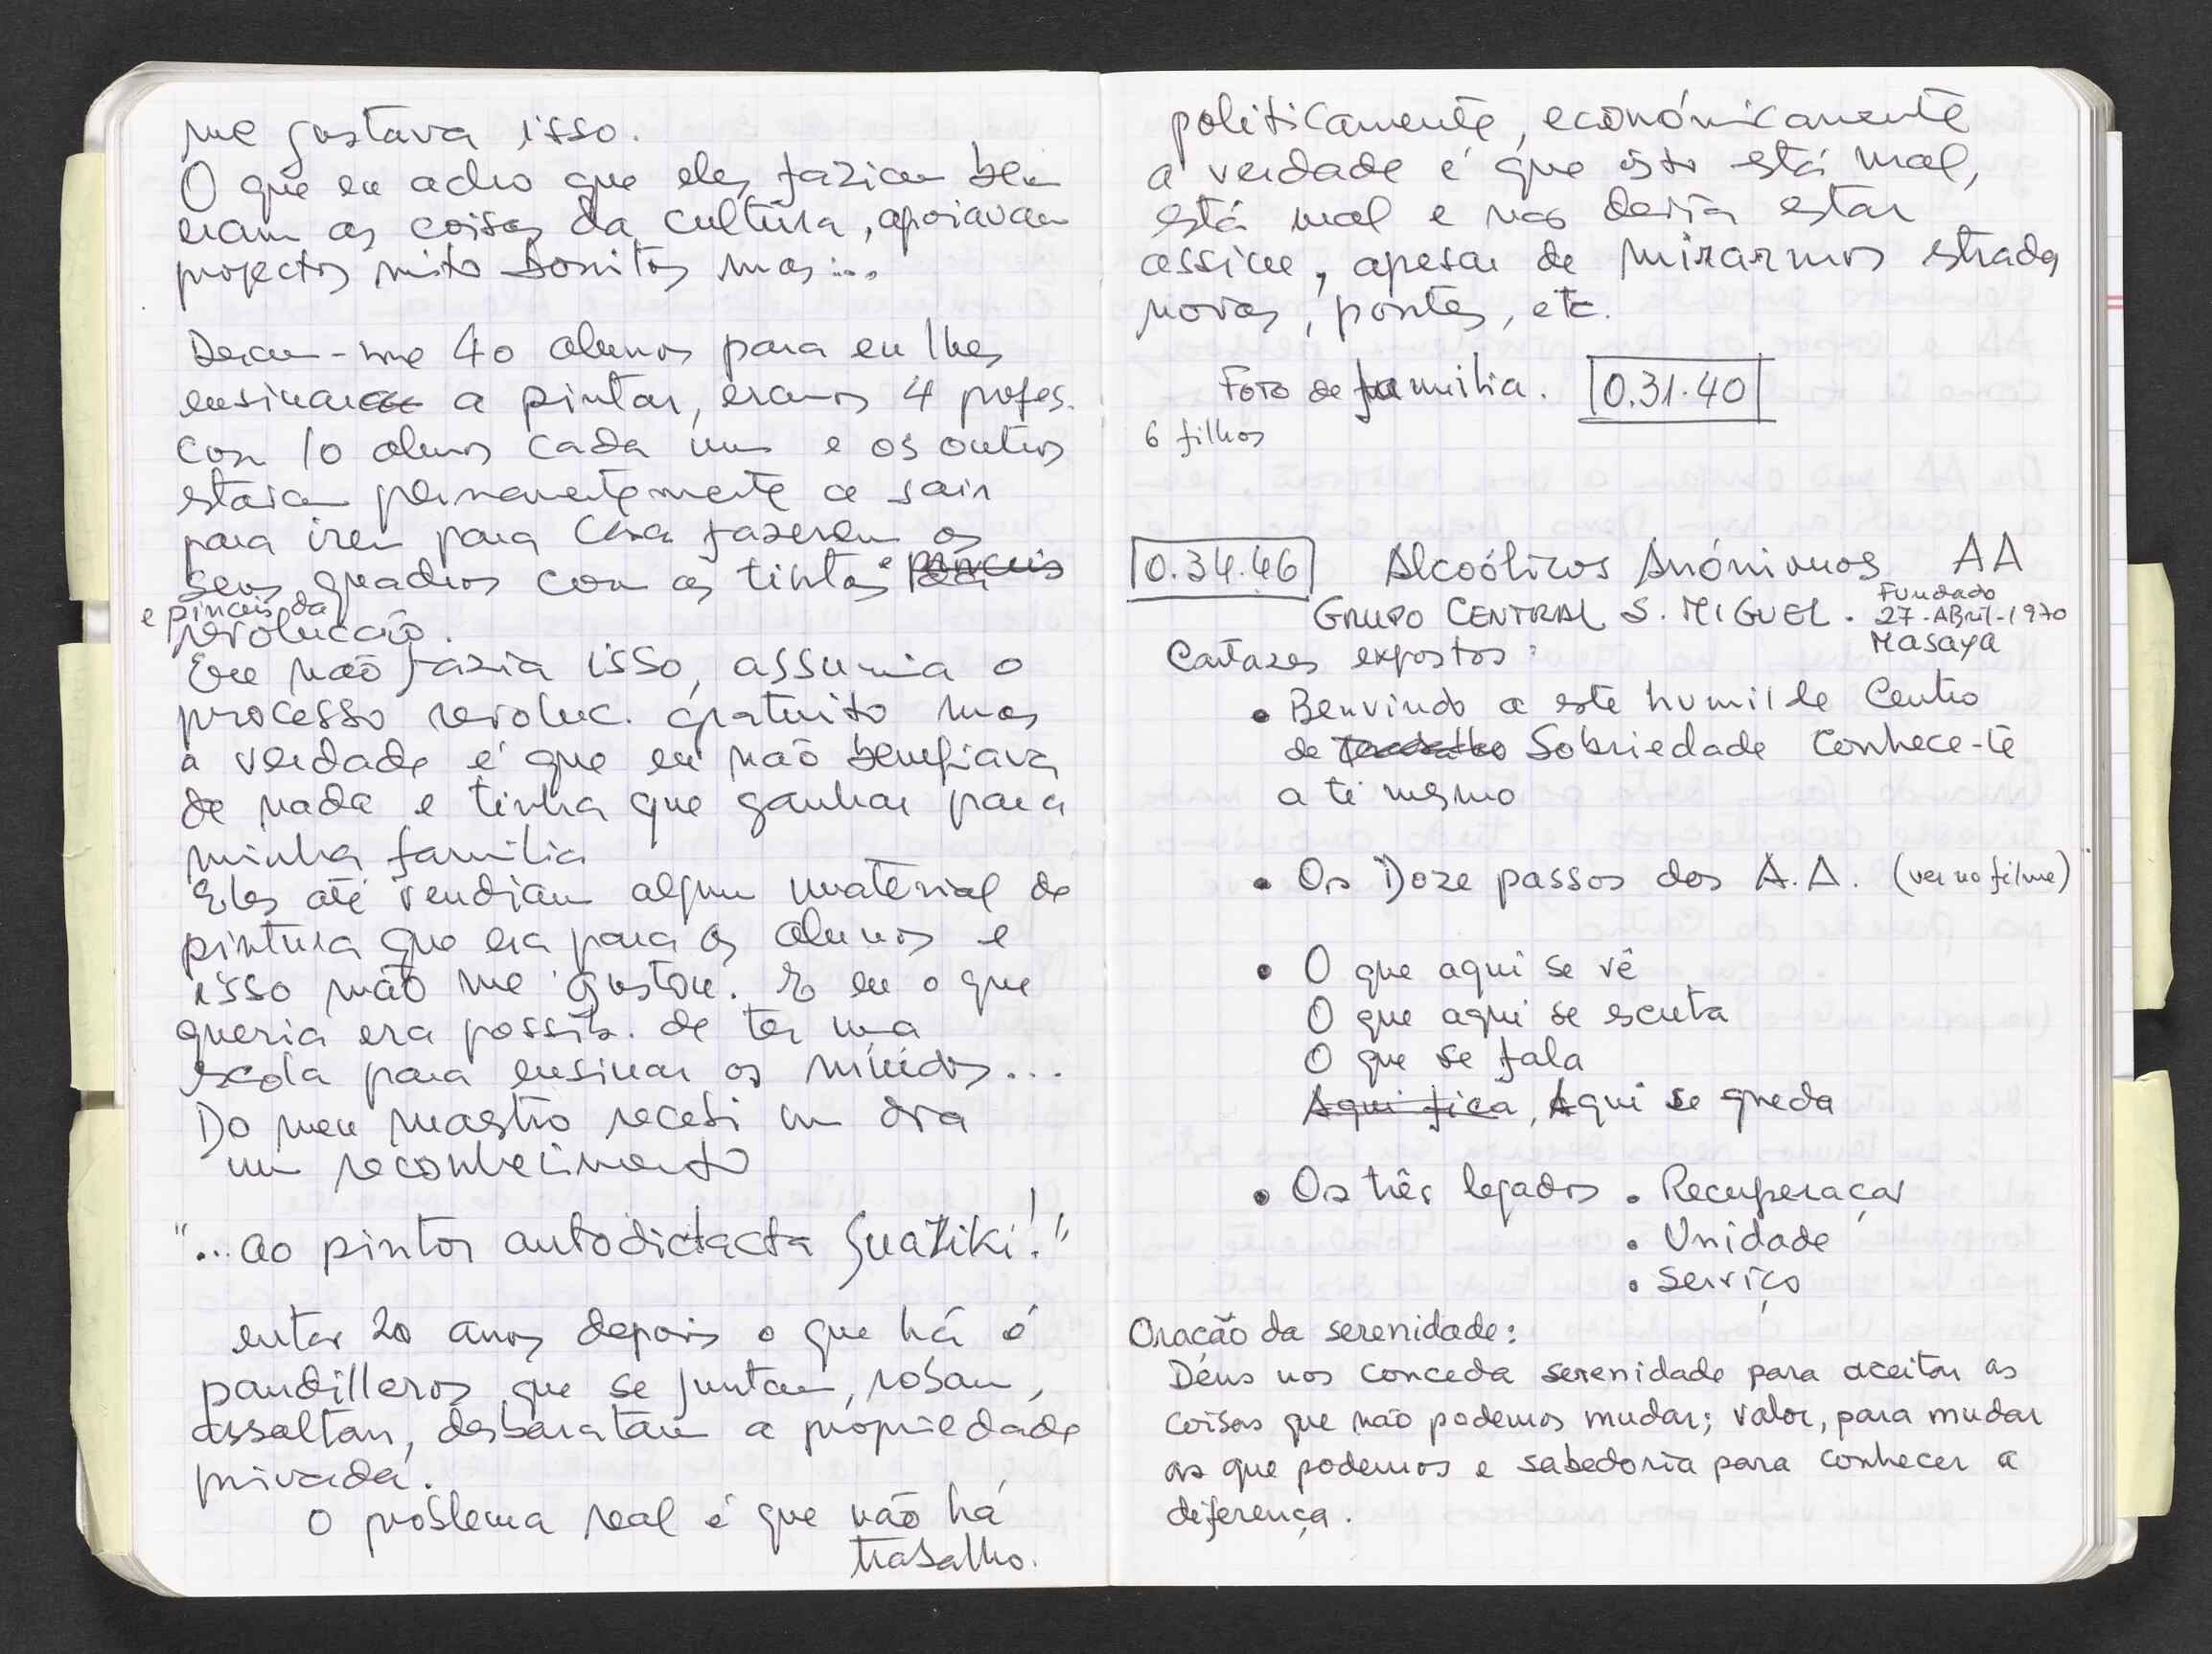 me gostava isso.
O que eu acho que eles faziam bem
eram as coisas da cultura, apoiavam
projectos mito bonitos mas...
Deram-me 40 alunos para eu lhes
ensinar a pintar, eramos 4 profes.
com 10 alunos cada um e os outros
estavam permanentemente a sair
para irem para casa fazerem os
seus quadros com as tintas e pinceis
e pinceis da
revolucção.
Eu não fazia isso, assumia o
processo revoluc. gratuito mas
a verdade é que eu não benefiava
de nada e tinha que ganhar para
minha familia
Eles até vendiam algum material de
pintura que era para os alunos e
isso não me gostou. E eu o que
queria era possib. de ter uma
escola para ensinar os miúdos...
Do meu mastro recebi um dia
um reconhecimento
"...ao pintor autodictacta Guaziki!"
entar 20 anos depois o que há é
pandilleros que se juntam, robam,
assaltan, desbaratam a propriedade
privada.
O problema real é que não há
trabalho.
politicamente, económicamente
a verdade é que isto está mal,
está mal e nao devia estar
assim, apesar de mirarmos estradas
novas, pontes, etc.
Foto de familia. 0.31.40
6 filhos
0.34.46 Alcoólicos Anónimos AA
GRUPO CENTRAL S. MIGUEL. Fundado
27-ABril-1970
Masaya
Cartazes expostos:
• Benvindo a este humilde Centro
de trabalho Sobriedade Conhece-te
a ti mesmo
• Os Doze passos dos A.A. (ver no filme)
• O que aqui se vê
O que aqui se escuta
O que se fala
Aqui fica, Aqui se queda
• Os três legados • Recuperaçao
• Unidade
• Serviço
Oração da serenidade:
Déus nos conceda serenidade para aceitar as
coisas que não podemos mudar; valor, para mudar
as que podemos e sabedoria para conhecer a
diferença.